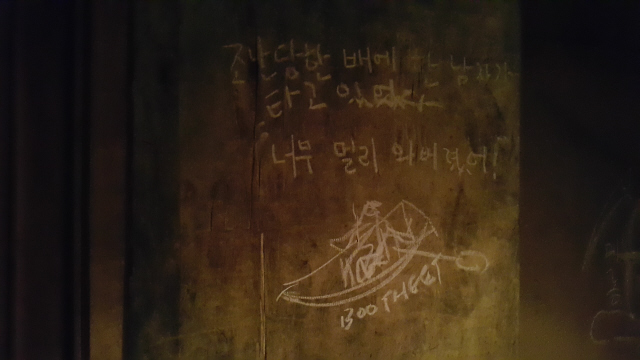 조난당한 배에 한 남자가
타고 있었다
너무 멀리 와버렸어!